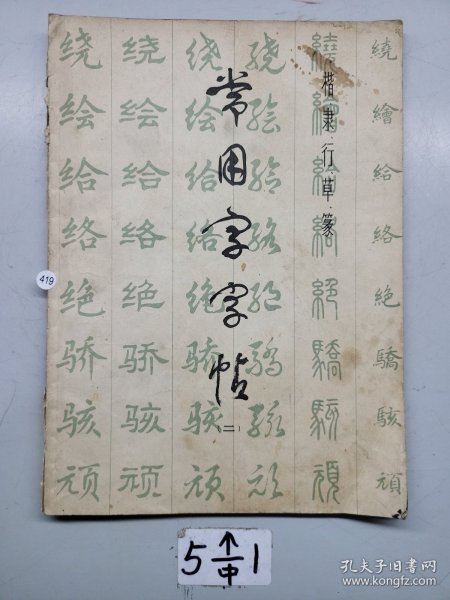 楷.隶.行.草.篆
常用字字帖
(二)
绕绘给络绝骄骇顽
绕绘给络绝骄骇顽
绕绘给络绝骄骇顽
绕绘给络绝骄骇顽
繞繪給絡絕驕駭頑
繞繪給絡絶驕駭頑
419
5 ↑中 1
孔夫子旧书网
www.kongfz.com